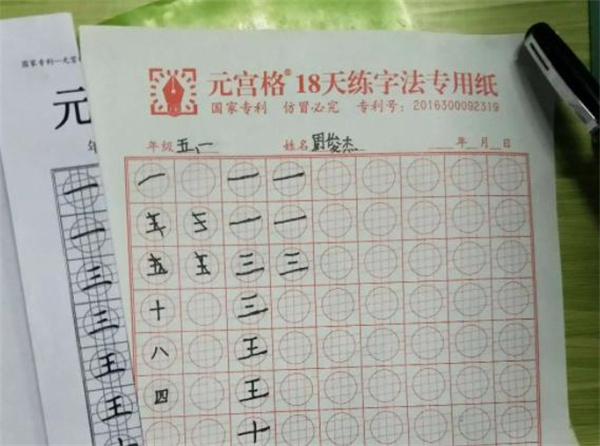 国家专利—元宫
元
元宫格®18天练字法专用纸
国家专利 仿冒必究 专利号：2016300092319
年级五、一 姓名周俊杰 年 月 日
一 一 一
五 五 一 一
五 五 三 三
十 三
八 王
四 王
十
一
一
三
三
王
王